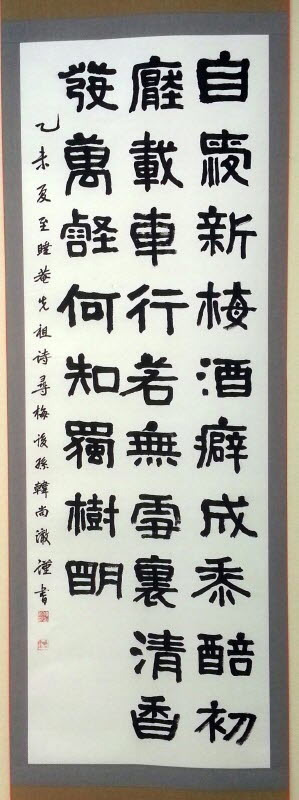 自愛新梅酒癖成黍醅初
壓載車行若無雪裏清香
發萬壑何知獨樹明
乙未夏至睡菴先祖诗尋梅後孫韓尚澈謹書